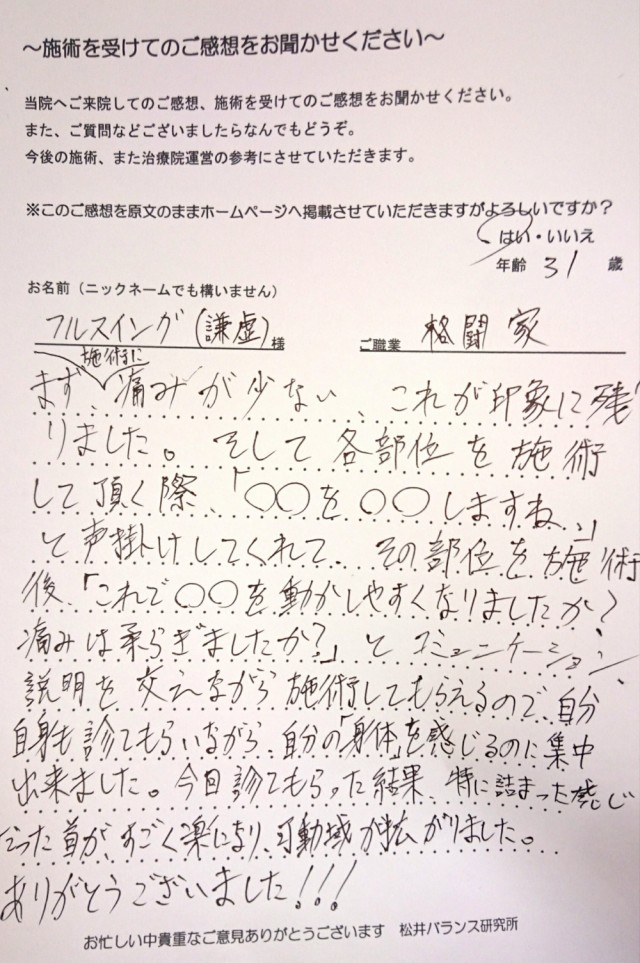 ～施術を受けてのご感想をお聞かせください～
当院へご来院してのご感想、施術を受けてのご感想をお聞かせください。
また、ご質問などございましたらなんでもどうぞ。
今後の施術、また治療院運営の参考にさせていただきます。
※このご感想を原文のままホームページへ掲載させていただきますがよろしいですか？
はい・いいえ
年齢 31 歳
お名前（ニックネームでも構いません）
フルスイング(謙虚) 様 ご職業 格闘家
施術に
まず、痛みが少ない、これが印象に残
りました。そして各部位を施術
して頂く際、「〇〇を〇〇しますね、」
と声掛けしてくれて、その部位を施術
後「これで〇〇を動かしやすくなりましたか?
痛みは柔らぎましたか?」とコミュニケーション、
説明を交えながら施術してもらえるので、自分
自身も診てもらいながら、自分の「身体」を感じるのに集中
出来ました。今日診てもらった結果、特に詰まった感じ
だった首が、すごく楽になり、可動域が拡がりました。
ありがとうございました!!!
お忙しい中貴重なご意見ありがとうございます 松井バランス研究所